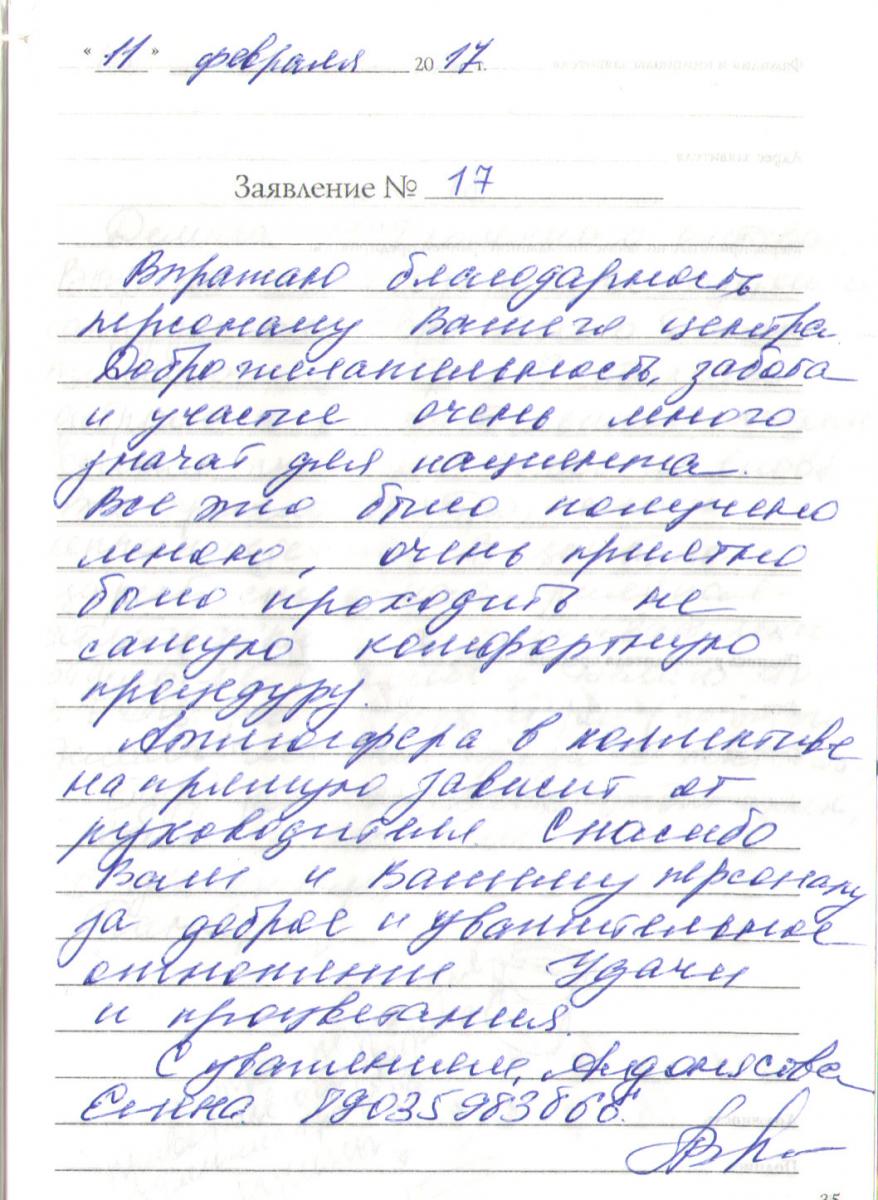 "11" февраля 2017 г.
Заявление № 17
Выражаю благодарность
персоналу Вашего центра.
Доброжелательность, забота
и участие очень много
значат для пациента.
Все это было получено
мною, очень приятно
было проходить не
самую комфортную
процедуру
Атмосфера в коллективе
напрямую зависит от
руководителя. Спасибо
Вам и Вашему персоналу
за доброе и уважительное
отношение Удачи
и процветания
С уважением,
35